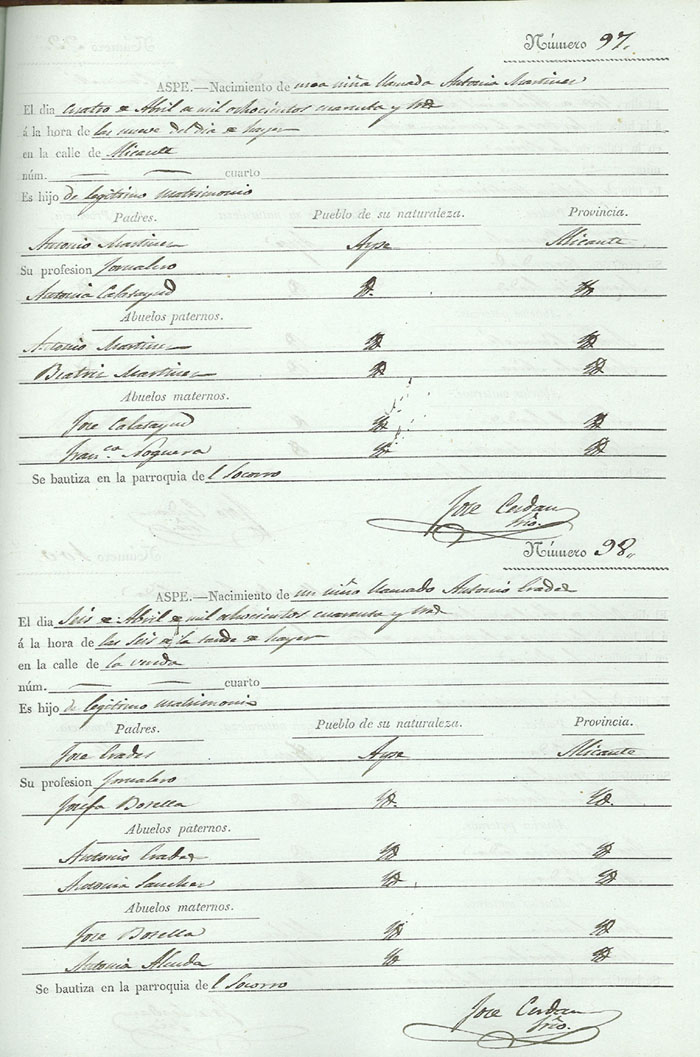 Número 97.
ASPE.—Nacimiento de una niña llamada Antonia Martinez
El dia cuatro de Abril de mil ochocientos cuarenta y tres
á la hora de las nueve del dia de hayer
en la calle de Alicante
núm. — — cuarto
Es hijo de legitimo matrimonio
Padres. Pueblo de su naturaleza. Provincia.
Antonio Martinez Aspe Alicante
Su profesion Jornalero
Antonia Calatayud Yd. Yd.
Abuelos paternos.
Antonio Martinez Yd. Yd.
Beatriz Martinez Yd. Yd.
Abuelos maternos.
Jose Calatayud Yd. Yd.
Fran.ca Noguera Yd. Yd.
Se bautiza en la parroquia del Socorro
Jose Cerdan
Srio.
Número 98.
ASPE.—Nacimiento de un niño llamado Antonio
El dia Seis de Abril de mil ochocientos cuarenta y tres
á la hora de las seis de la tarde de hayer
en la calle de la
núm. — — cuarto
Es hijo de legitimo matrimonio
Padres. Pueblo de su naturaleza. Provincia.
Jose Aspe Alicante
Su profesion Jornalero
Josefa Botella Yd. Yd.
Abuelos paternos.
Antonio Yd. Yd.
Antonia Sanchez Yd. Yd.
Abuelos maternos.
Jose Botella Yd. Yd.
Antonia Yd. Yd.
Se bautiza en la parroquia del Socorro
Jose Cerdan
Srio.